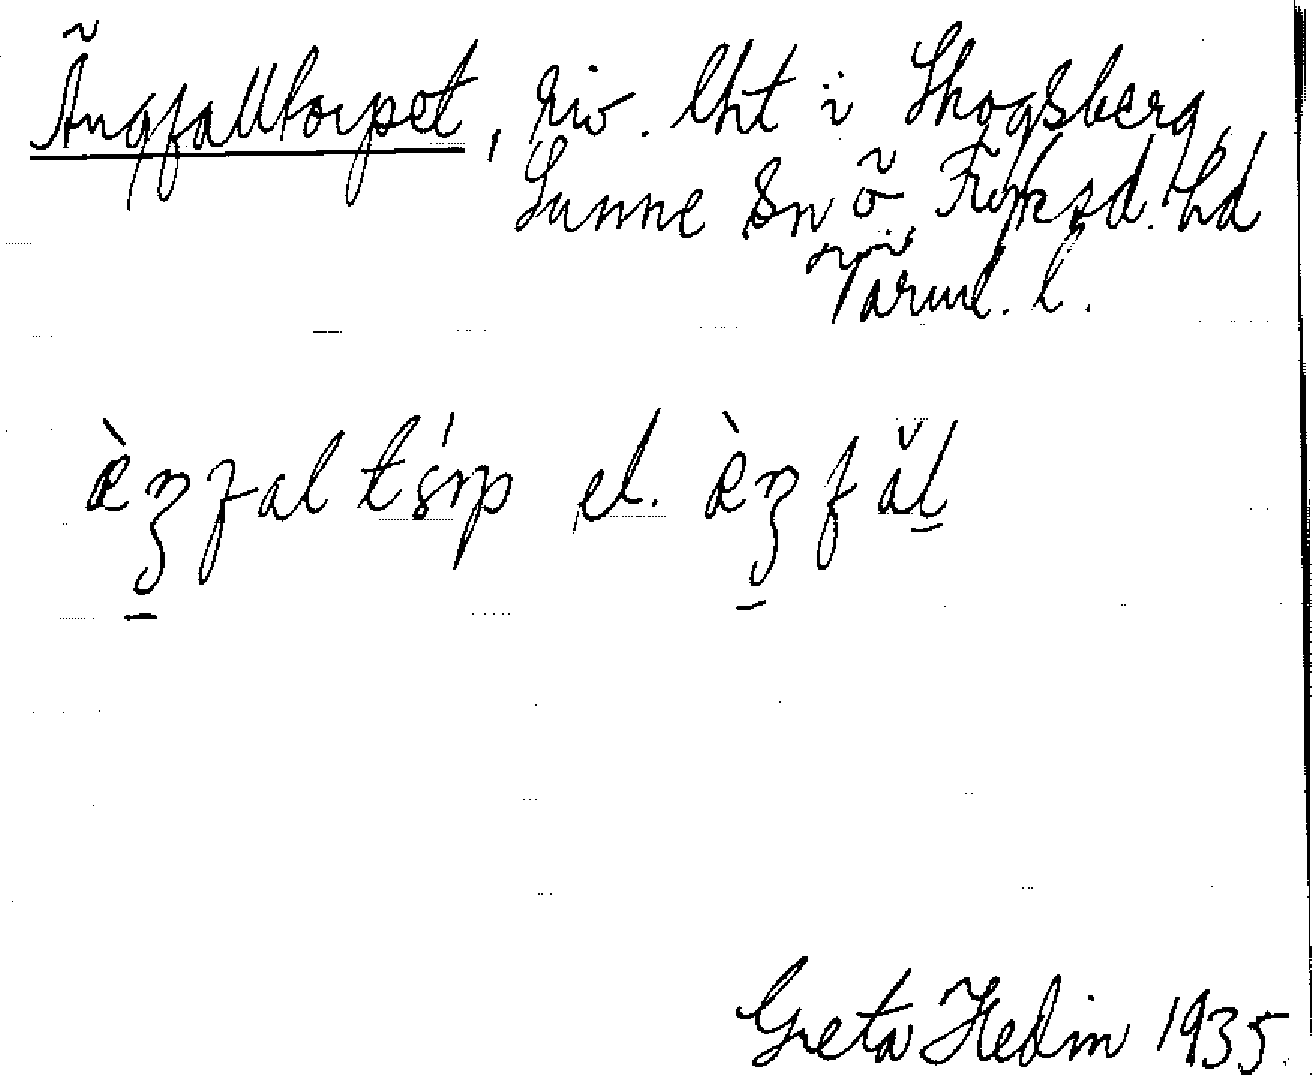 Ängfalltorpet, riv. lht i Skogsberg,
Sunne Sn Ö. Fryksd. hd
Värml. l.
el.
Greta Hedin 1935.